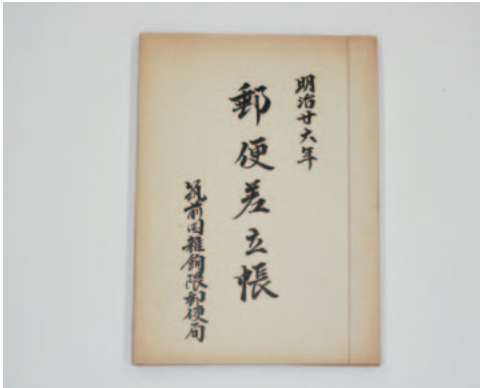 明治廿六年
郵便差立帳
筑前国雑餉隈郵便局